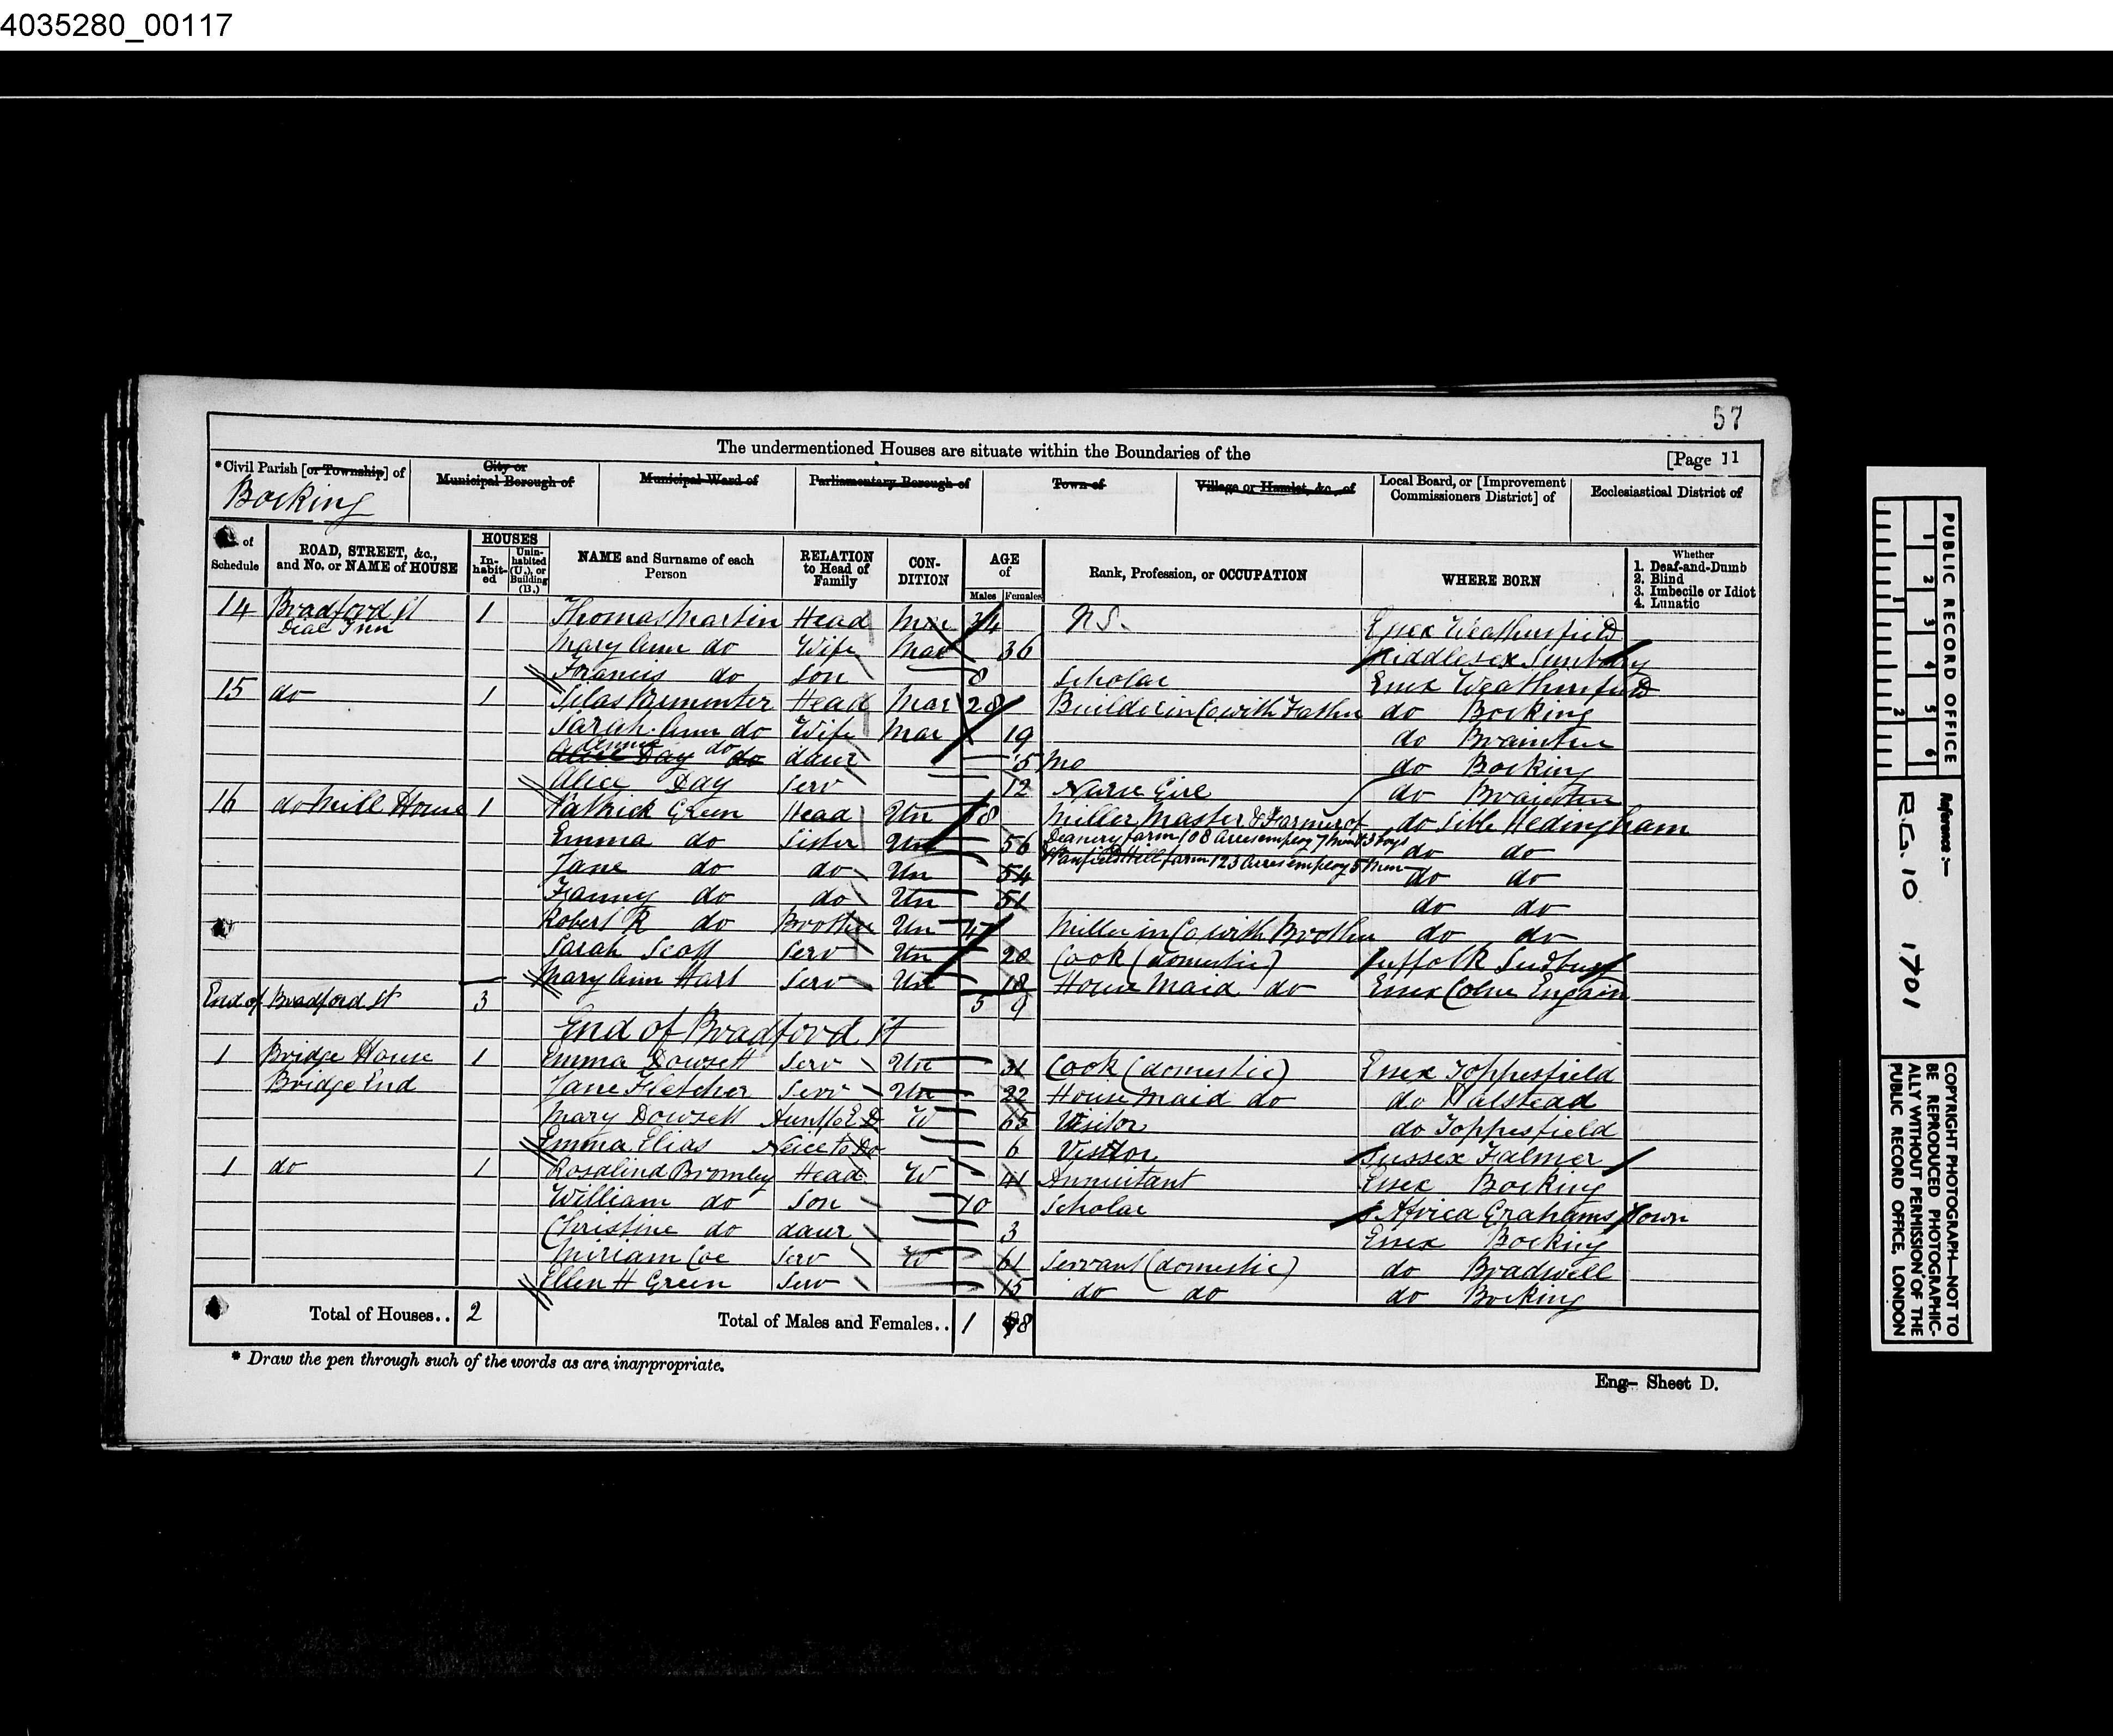 4035280_00117
57
The undermentioned Houses are situate within the Boundaries of the
[Page 11
*Civil Parish [or Township] of City or Municipal Borough of Municipal Ward of Parliamentary Borough of Town of Village or Hamlet, &c., of Local Board, or [Improvement Commissioners District] of Ecclesiastical District of
Bocking
No. of Schedule ROAD, STREET, &c., and No. or NAME of HOUSE HOUSES In-habit-ed Unin-habited (U.), or Building (B.) NAME and Surname of each Person RELATION to Head of Family CON-DITION AGE of Males Females Rank, Profession, or OCCUPATION WHERE BORN Whether 1. Deaf-and-Dumb 2. Blind 3. Imbecile or Idiot 4. Lunatic
14 Bradford St 1 Thomas Martin Head Mar 34 N.S. Essex Weathersfield
Dial Inn
Mary Ann do Wife Mar 36 Middlesex Sunbury
Francis do Son 8 Scholar Essex Weathersfield
15 do 1 Silas Parmenter Head Mar 28 Builder in Co with Father do Bocking
Sarah Ann do Wife Mar 19 do Braintree
Alice Day do do daur 5 Mo do Bocking
Alice Day Serv 12 Nurse Girl do Braintree
16 do Mill House 1 Patrick Green Head Un 58 Miller Master & Farmer of do Sible Hedingham
Emma do Sister Un 56 Deanery farm 108 Acres employ 7 men & 3 boys do do
Jane do do Un 54 Hill farm 123 Acres employ 5 Men do do
Fanny do do Un 51 do do
Robert R do Brother Un 47 Miller in Co with Brother do do
Sarah Scott Serv Un 20 Cook (domestic) Suffolk Sudbury
Mary Ann Hart Serv Un 18 House Maid do Essex Colne Engain
End of Bradford St 3 5 9
End of Bradford St
1 Bridge House 1 Emma Dowsett Serv Un 31 Cook (domestic) Essex Toppesfield
Bridge End Jane Fletcher Serv Un 22 House Maid do do Halstead
Mary Dowsett Aunt to E D W 65 Visitor do Toppesfield
Emma Elias Neice to Do 6 Visitor Sussex Falmer
1 do 1 Rosalind Bromley Head W 41 Annuitant Essex Bocking
William do Son 10 Scholar S Africa Grahams Town
Christine do daur 3 Essex Bocking
Miriam Coe Serv W 61 Servant (domestic) do Bradwell
Ellen H Green Serv 15 do do do Bocking
Total of Houses.. 2 Total of Males and Females.. 1 8
* Draw the pen through such of the words as are inappropriate.
Eng- Sheet D.
PUBLIC RECORD OFFICE
1 2 3 4 5 6
1 2
Reference :-
R.G. 10 1701
COPYRIGHT PHOTOGRAPH—NOT TO BE REPRODUCED PHOTOGRAPHICALLY WITHOUT PERMISSION OF THE PUBLIC RECORD OFFICE, LONDON